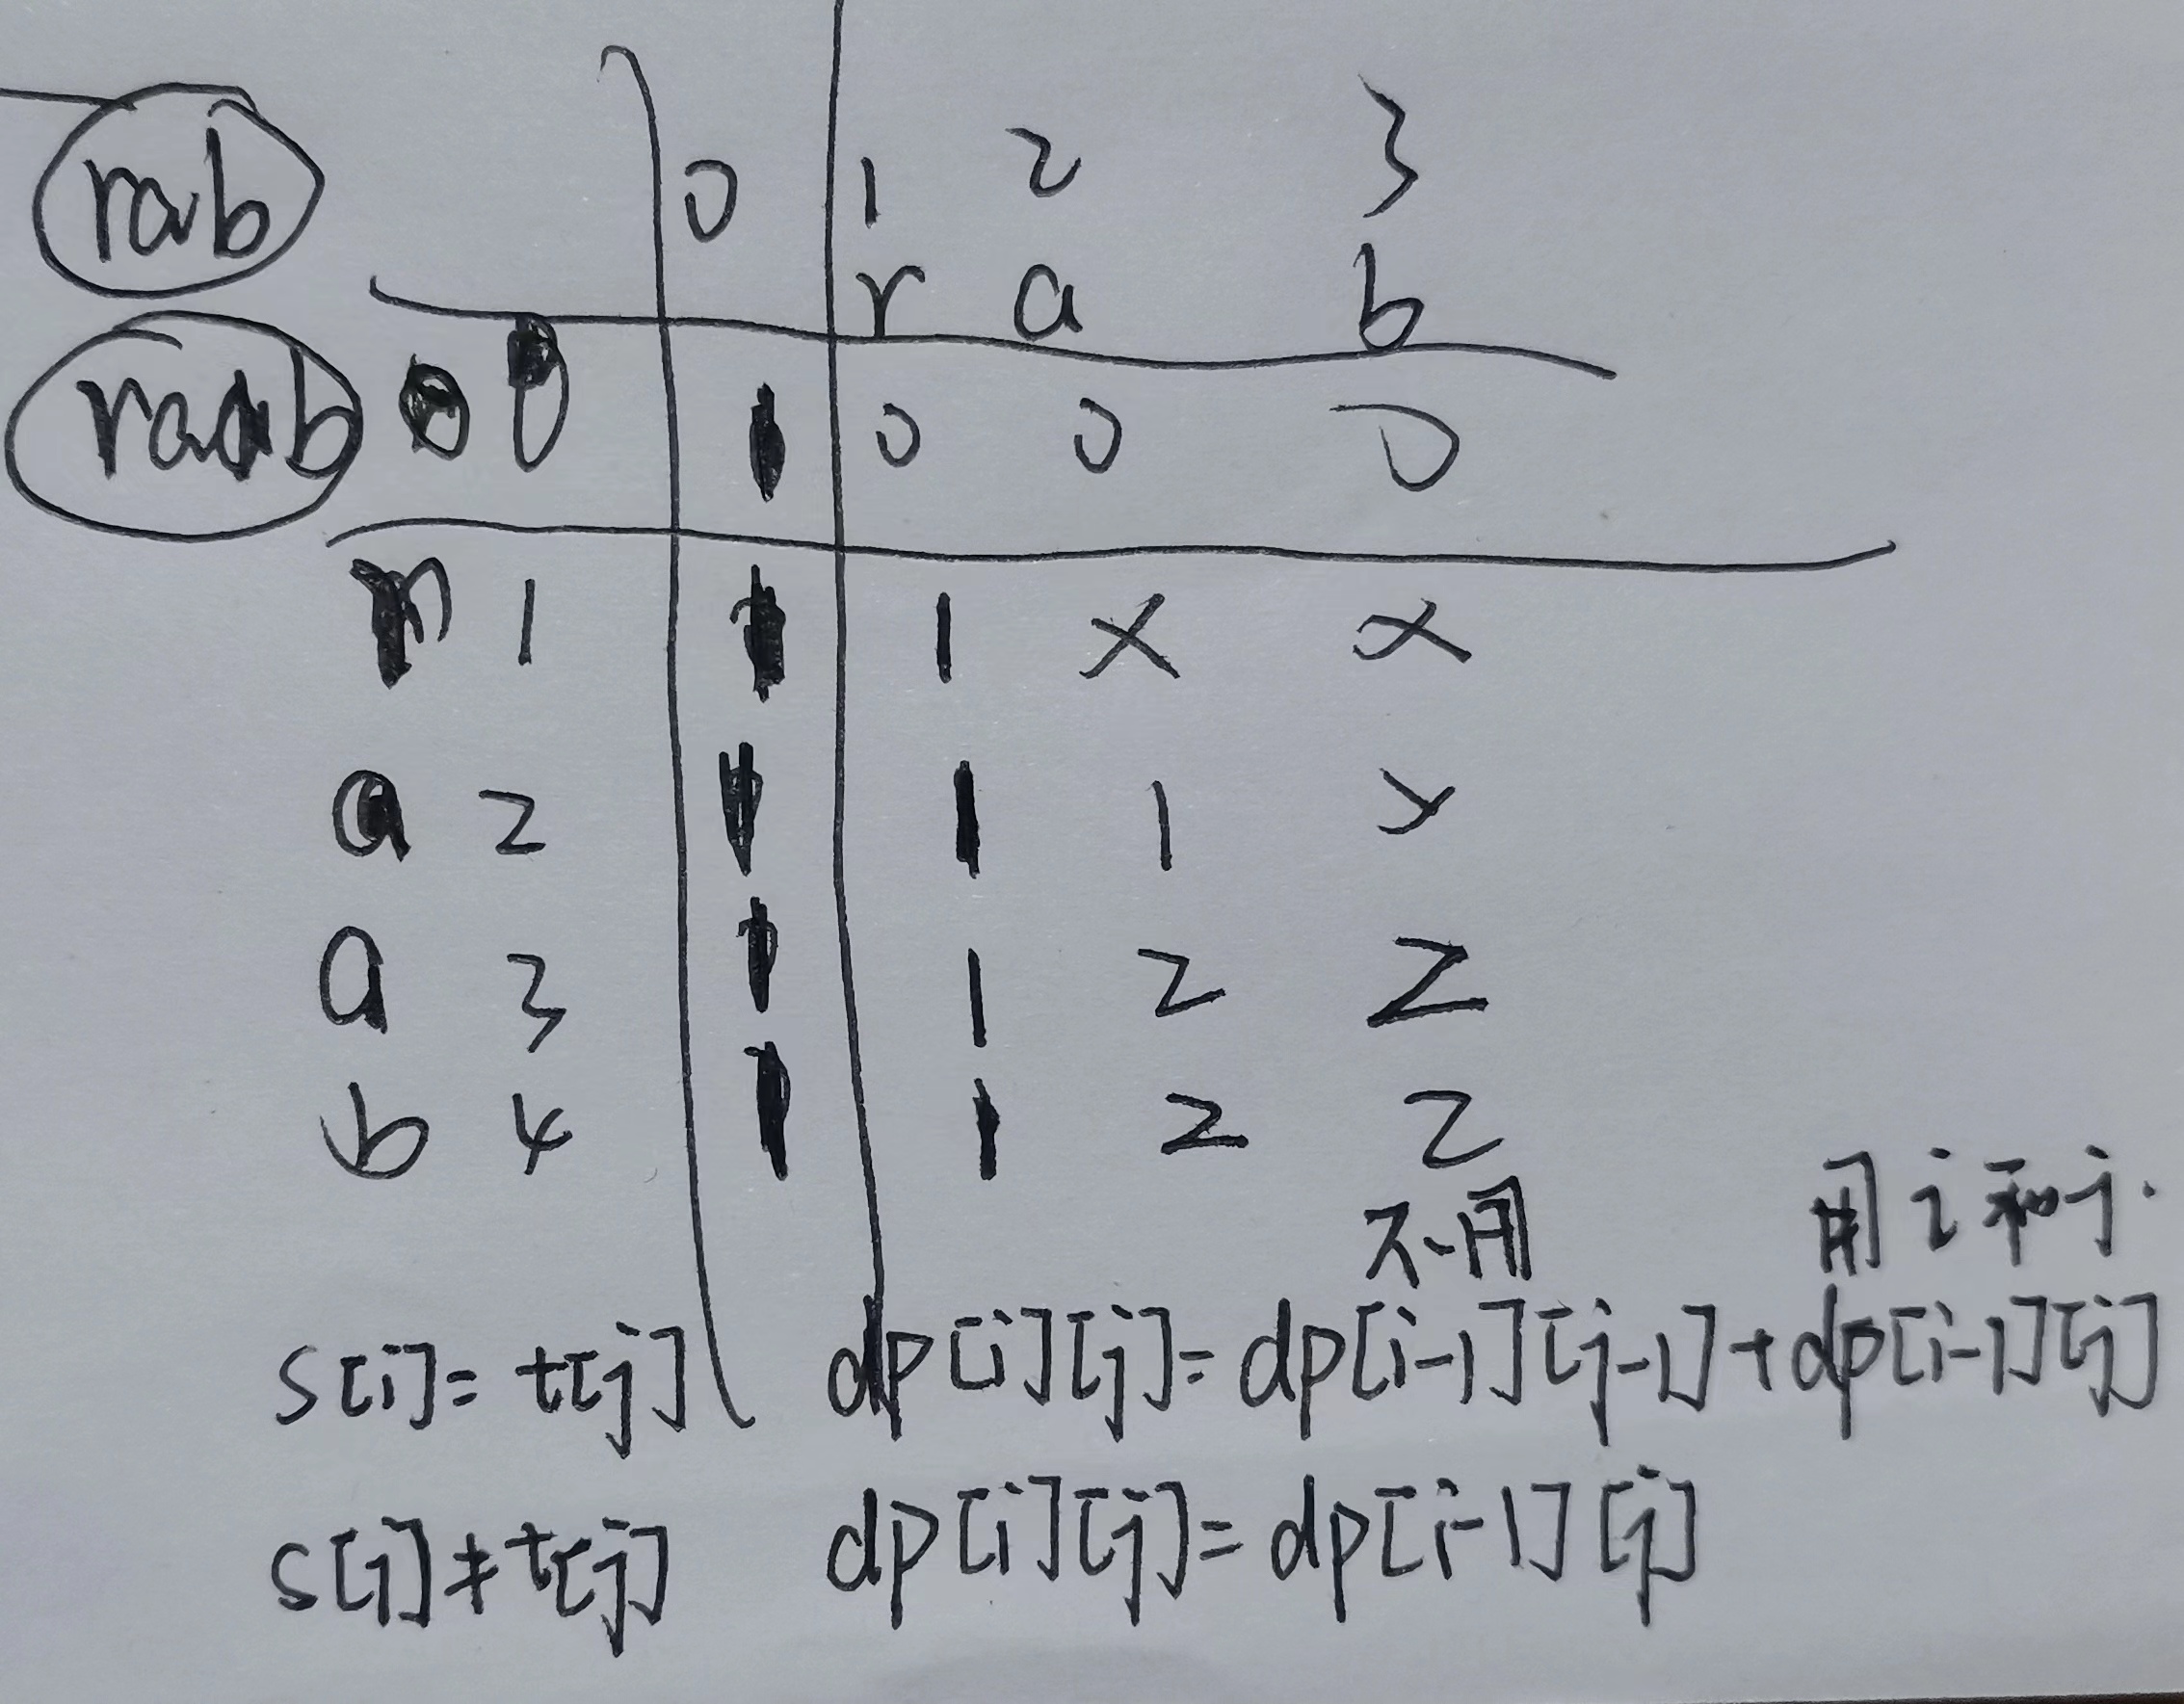 0 1 2 3
rab r a b
raab 0 0 1 0 0 0
r 1 1 1 x x
a 2 1 1 1 x
a 3 1 1 2 2
b 4 1 1 2 2
不用 用i和j.
s[i]=t[j] dp[i][j]=dp[i-1][j-1]+dp[i-1][j]
s[i]≠t[j] dp[i][j]=dp[i-1][j]